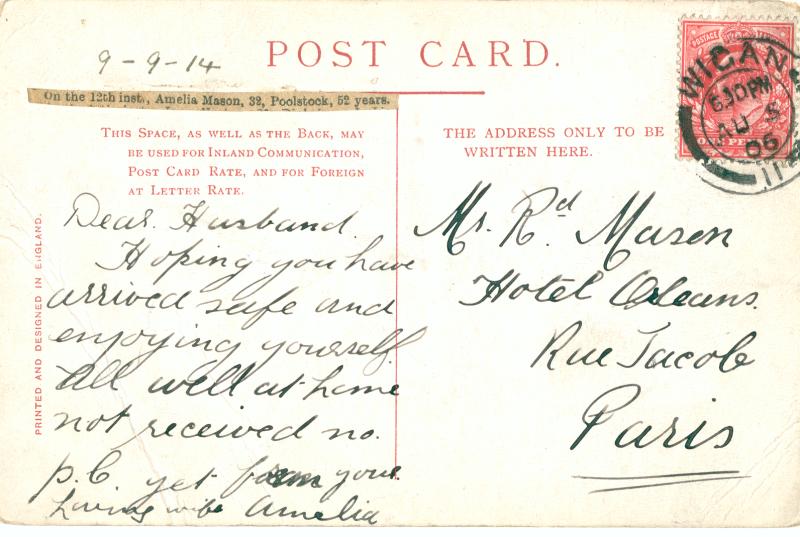 9-9-14
POST CARD.
On the 12th inst., Amelia Mason, 32, Poolstock, 52 years.
THIS SPACE, AS WELL AS THE BACK, MAY
BE USED FOR INLAND COMMUNICATION,
POST CARD RATE, AND FOR FOREIGN
AT LETTER RATE.
THE ADDRESS ONLY TO BE
WRITTEN HERE.
POSTAGE
WIGAN
630PM
AU 5
06
11
PRINTED AND DESIGNED IN ENGLAND.
Dear Husband.
Hoping you have
arrived safe and
enjoying yourself
All well at home
not received no.
p.c. yet from your
Loving wife Amelia
Mr. Rd Mason
Hotel Orleans.
Rue Jacob
Paris